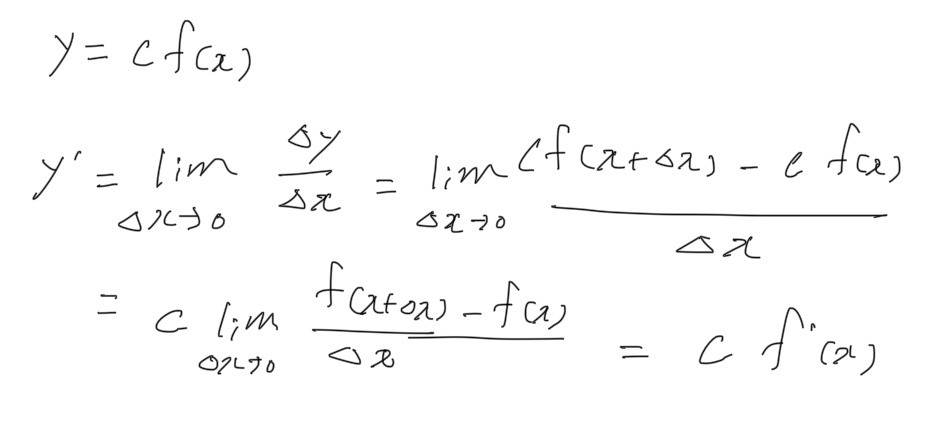 y = c f(x)
y' = lim Δx→0 Δy/Δx = lim Δx→0 (cf(x+Δx) - c f(x))/Δx
= c lim Δx→0 (f(x+Δx) - f(x))/Δx = c f'(x)